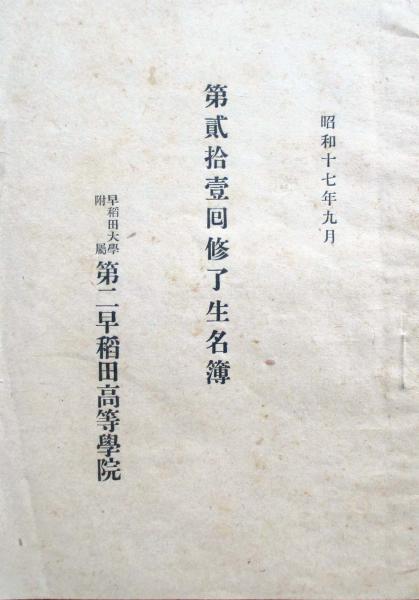 昭和十七年九月
第貳拾壹囘修了生名簿
早稻田大學
附屬
第二早稻田高等學院